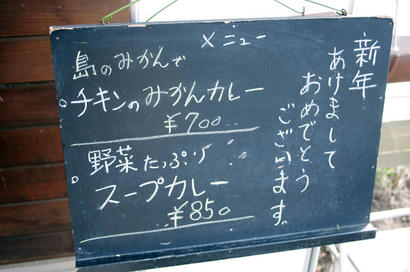 新年
あけまして
おめでとう
ございます
メニュー
島のみかんで
チキンのみかんカレー
¥700
野菜たっぷり
スープカレー
¥850